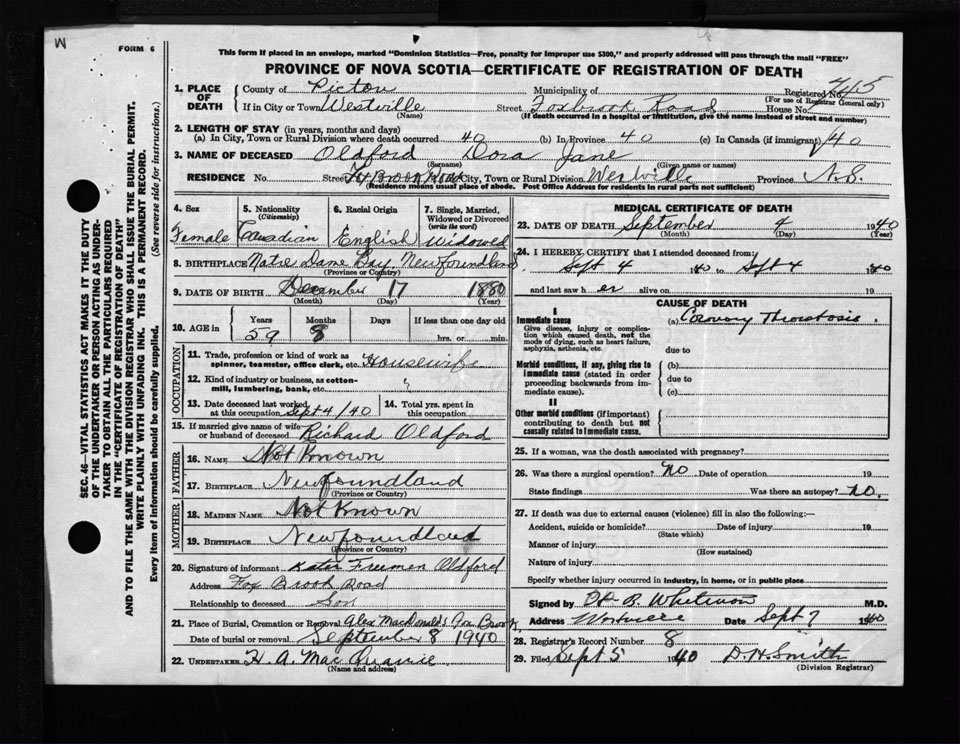 W
FORM 6
This form if placed in an envelope, marked "Dominion Statistics—Free, penalty for improper use $300," and properly addressed will pass through the mail "FREE"
PROVINCE OF NOVA SCOTIA—CERTIFICATE OF REGISTRATION OF DEATH
SEC. 46—VITAL STATISTICS ACT MAKES IT THE DUTY
OF THE UNDERTAKER OR PERSON ACTING AS UNDER-
TAKER TO OBTAIN ALL THE PARTICULARS REQUIRED
IN THE "CERTIFICATE OF REGISTRATION OF DEATH"
AND TO FILE THE SAME WITH THE DIVISION REGISTRAR WHO SHALL ISSUE THE BURIAL PERMIT.
WRITE PLAINLY WITH UNFADING INK. THIS IS A PERMANENT RECORD.
Every item of information should be carefully supplied. (See reverse side for instructions.)
1. PLACE OF DEATH
County of Pictou Municipality of Registered No. 745
(For use of Registrar General only)
If in City or Town Westville Street Foxbrook Road House No.
(Name) (If death occurred in a hospital or institution, give the name instead of street and number)
2. LENGTH OF STAY (in years, months and days)
(a) In City, Town or Rural Division where death occurred 40 (b) In Province 40 (c) In Canada (if immigrant) 40
3. NAME OF DECEASED Oldford Dora Jane
(Surname) (Given name or names)
RESIDENCE No. Street Fox Brook Road City, Town or Rural Division Westville Province N.S.
(Residence means usual place of abode. Post Office Address for residents in rural parts not sufficient)
4. Sex
Female
5. Nationality
(Citizenship)
Canadian
6. Racial Origin
English
7. Single, Married,
Widowed or Divorced
(write the word)
Widowed
8. BIRTHPLACE Notre Dame Bay, Newfoundland
(Province or Country)
9. DATE OF BIRTH December 17 1880
(Month) (Day) (Year)
10. AGE in
Years Months Days If less than one day old
59 8 hrs. or min.
OCCUPATION
11. Trade, profession or kind of work as
spinner, teamster, office clerk, etc. Housewife
12. Kind of industry or business, as cotton-
mill, lumbering, bank, etc. "
13. Date deceased last worked
at this occupation Sept 4/40
14. Total yrs. spent in
this occupation
15. If married give name of wife
or husband of deceased Richard Oldford
FATHER
16. NAME Not Known
17. BIRTHPLACE Newfoundland
(Province or Country)
MOTHER
18. MAIDEN NAME Not Known
19. BIRTHPLACE Newfoundland
(Province or Country)
20. Signature of informant Freeman Oldford
Address Fox Brook Road
Relationship to deceased Son
21. Place of Burial, Cremation or Removal Alex MacDonalds Fox Brook
Date of burial or removal September 8 1940
22. UNDERTAKER H. A. MacQuarrie
(Name and address)
MEDICAL CERTIFICATE OF DEATH
23. DATE OF DEATH September 4 1940
(Month) (Day) (Year)
24. I HEREBY CERTIFY that I attended deceased from:
Sept 4 1940 to Sept 4 1940
and last saw her alive on 19
CAUSE OF DEATH
I
Immediate cause
Give disease, injury or complica-
tion which caused death, not the
mode of dying, such as heart failure,
asphyxia, asthenia, etc.
(a) Coronary Thrombosis.
due to
Morbid conditions, if any, giving rise to
immediate cause (stated in order
proceeding backwards from im-
mediate cause).
(b)
due to
(c)
II
Other morbid conditions (if important)
contributing to death but not
causally related to immediate cause.
25. If a woman, was the death associated with pregnancy?
26. Was there a surgical operation? no Date of operation 19
State findings Was there an autopsy? no.
27. If death was due to external causes (violence) fill in also the following:—
Accident, suicide or homicide? Date of injury 19
(State which)
Manner of injury
(How sustained)
Nature of injury
Specify whether injury occurred in industry, in home, or in public place
Signed by Whitman M.D.
Address Westville Date Sept 7 1940
28. Registrar's Record Number 8
29. Filed Sept 5 1940 D. H. Smith
(Division Registrar)